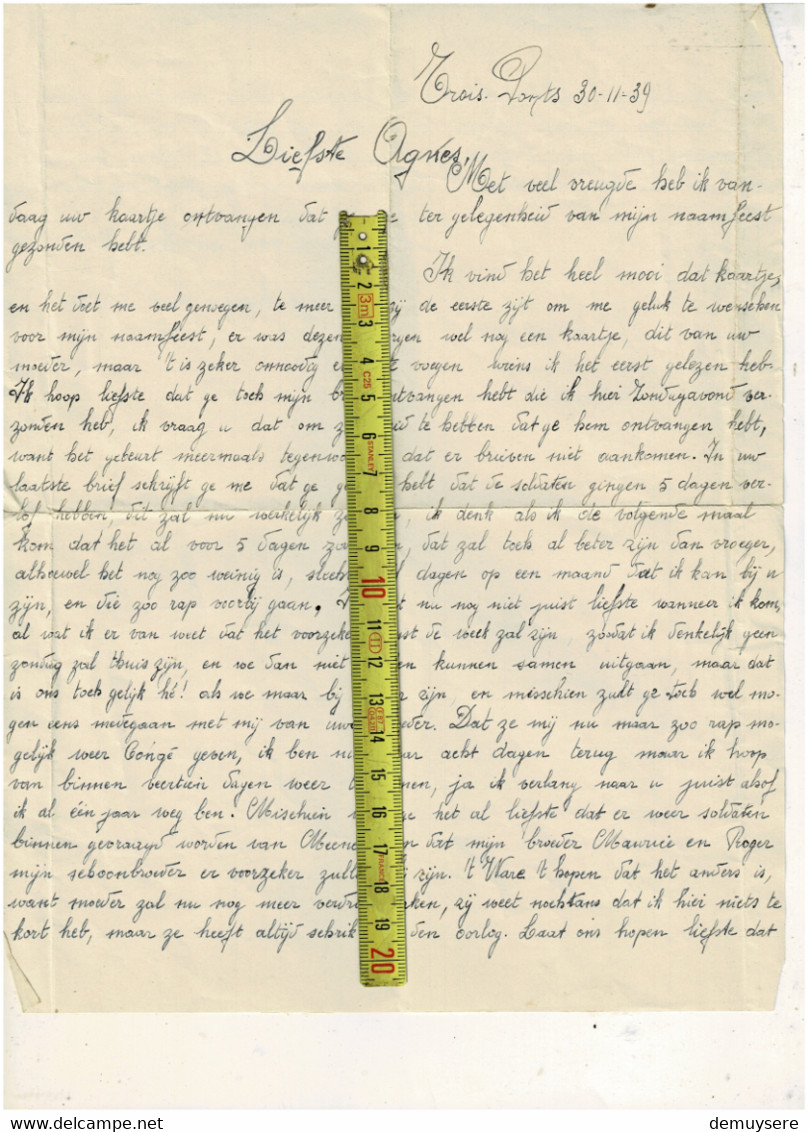 Trois. Ponts 30-11-39
Liefste Agnes,
Met veel vreugde heb ik van-
daag uw kaartje ontvangen dat ter gelegenheid van mijn naamfeest
gezonden hebt.
Ik vind het heel mooi dat kaartje,
en het doet me veel genoegen, te meer gij de eerste zijt om me geluk te wenschen
voor mijn naamfeest, er was dezen wel nog een kaartje, dit van uw
moeder, maar 't is zeker onnoodig voegen wiens ik het eerst gelezen heb.
Ik hoop liefste dat ge toch mijn ontvangen hebt die ik hier Zondagavond ver-
zonden heb, ik vraag u dat om te hebben dat ge hem ontvangen hebt,
want het gebeurt meermaals dat er brieven niet aankomen. In uw
laatste brief schrijft ge me dat ge hebt dat de soldaten gingen 5 dagen ver-
lof hebben, dit zal nu werkelijk ik denk als ik de volgende maal
kom dat het al voor 5 dagen dat zal toch al beter zijn dan vroeger,
alhoewel het nog zoo weinig is, dagen op een maand dat ik kan bij u
zijn, en die zoo rap voorbij gaan. nu nog niet juist liefste wanneer ik kom,
al wat ik er van weet dat het voorzeker de week zal zijn zoodat ik denkelijk geen
zondag zal thuis zijn, en we dan niet kunnen samen uitgaan, maar dat
is ons toch gelijk hé! als we maar bij zijn en misschien zult ge toch wel mo-
gen eens medegaan met mij van uwe Dat ze mij nu maar zoo rap mo-
gelijk weer Congé geven, ik ben nu acht dagen terug maar ik hoop
van binnen veertien dagen weer ja ik verlang naar u juist alsof
ik al één jaar weg ben. Mischien het al liefste dat er weer soldaten
binnen gevraagd worden van Meenen dat mijn broeder Maurice en Roger
mijn schoonbroeder er voorzeker zijn. 't Ware 't hopen dat het anders is,
want moeder zal nu nog meer zij weet nochtans dat ik hier niets te
kort heb, maar ze heeft altijd schrik den oorlog. Laat ons hopen liefste dat
1
2
3m
3
4
C25
5
6
STANLEY
7
8
9
10
11
12
13
14
15
16
17
FRANCE
18
19
20
© demuysere